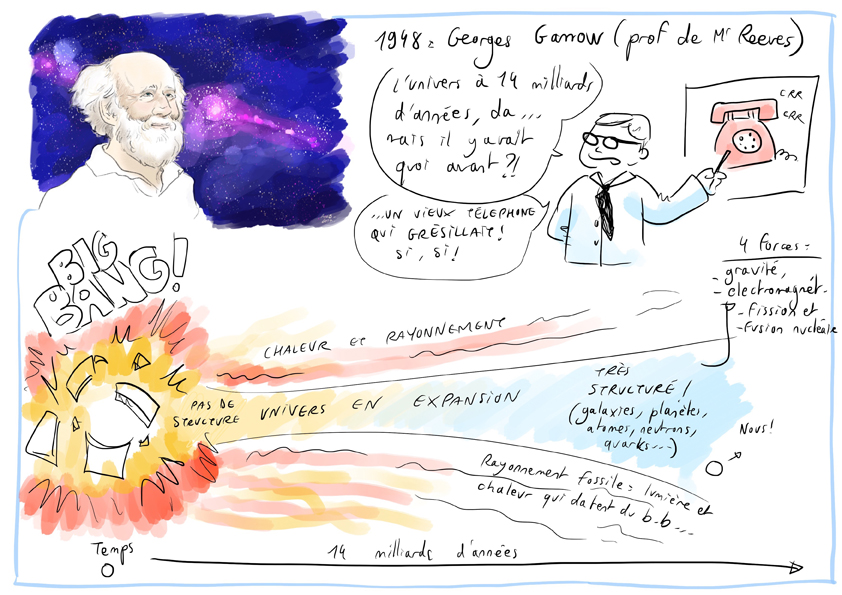 1948 : Georges Gamow (prof de Mr Reeves)
L'univers à 14 milliards
d'années, da...
mais il y avait
quoi avant ?!
CRR
CRR
...UN VIEUX TÉLEPHONE
QUI GRÉSILLAIT !
SI, SI !
BIG
BANG !
4 forces :
- gravité,
- électromagnét.
- fission et
- fusion nucléaire
CHALEUR ET RAYONNEMENT
PAS DE
STRUCTURE
UNIVERS EN EXPANSION
TRÈS
STRUCTURÉ !
(galaxies, planètes,
atomes, neutrons,
quarks...)
Nous !
Rayonnement fossile = lumière et
chaleur qui datent du b-b...
Temps
0
14 milliards d'années